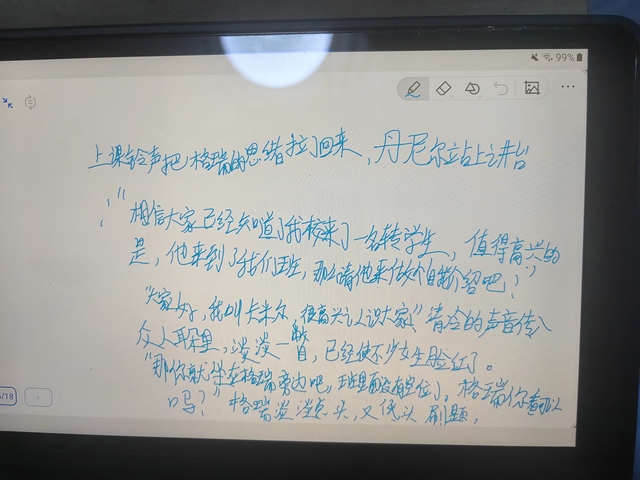 99%
上课铃声把格瑞的思绪拉了回来，丹尼尔站上讲台
：“相信大家已经知道了我校来了一名转学生，值得高兴的
是，他来到了我们班，那么请他来做个自我介绍吧！”
“大家好，我叫卡米尔，很高兴认识大家”清冷的声音传入
众人耳朵里，淡淡一瞥，已经使不少女生脸红了。
“那你就坐在格瑞旁边吧，班里面没有空位了，格瑞你看可以
吗？”格瑞淡淡点头，又低头刷题，
/18